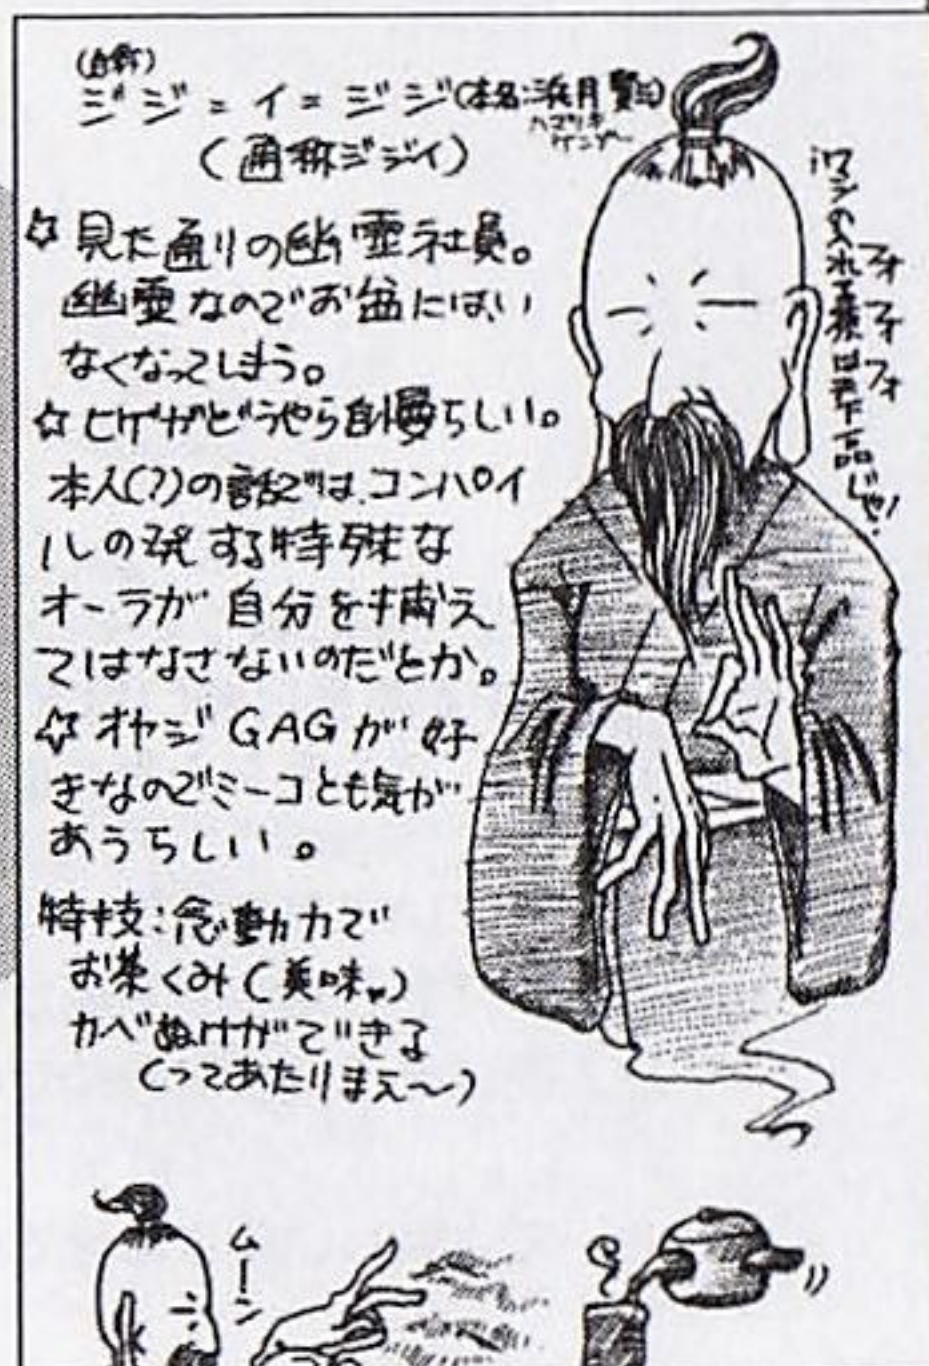 (自称)
ジジ=イ=ジジ(本名:浜月賢三)
ハマツキ
ケンゾー
(通称ジジイ)
☆見た通りの幽霊社員。
幽霊なのでお盆にはい
なくなってしまう。
☆ヒゲがどうやら自慢らしい。
本人(?)の話では、コンパイ
ルの発する特殊な
オーラが自分を捕え
てはなさないのだとか。
☆オヤジGAGが好
きなのでミーコとも気が
あうらしい。
特技:念動力で
お茶くみ(美味♥)
カベぬけができる
(ってあたりまえ~)
ワシの入れる茶は天下一品じゃ!
フォフォフォ
ムーン